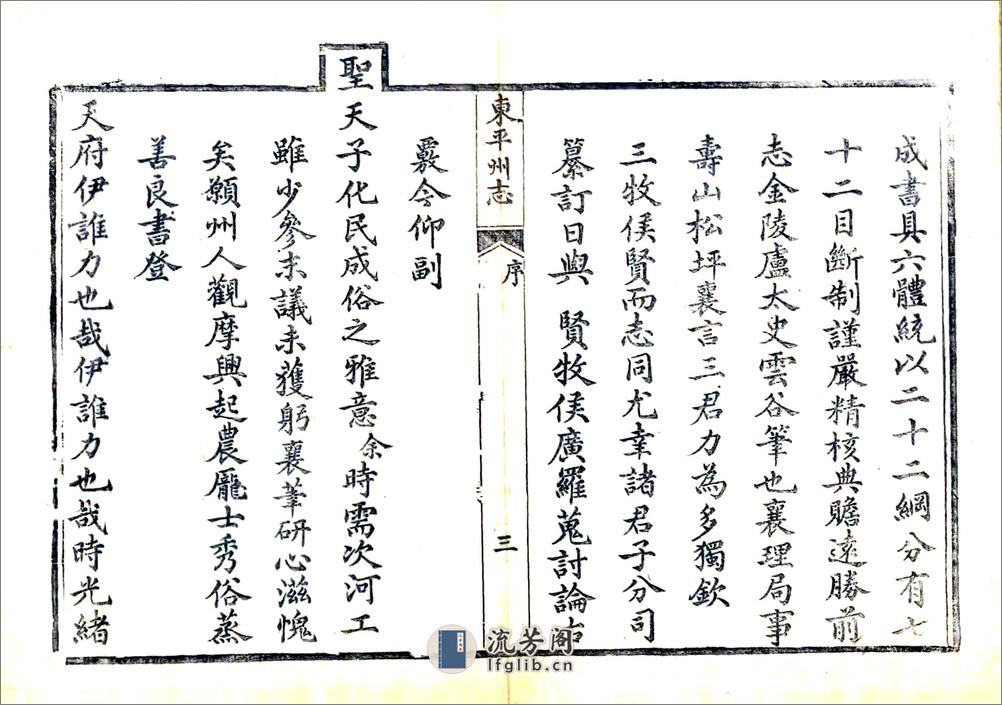 成書具六體統以二十二綱分有七
十二目斷制謹嚴精核典贍遠勝前
志金陵盧太史雲谷筆也襄理局事
壽山松坪襄言三君力為多獨欽
三牧侯賢而志同尤幸諸君子分司
纂訂日與 賢牧侯廣羅蒐討論古
東平州志
序
三
覈今仰副
聖天子化民成俗之雅意余時需次河工
雖少參末議未獲躬襄筆研心滋愧
矣願州人觀摩興起農龐士秀俗蒸
善良書登
天府伊誰力也哉伊誰力也哉時光緒
流芳阁
lfglib.cn